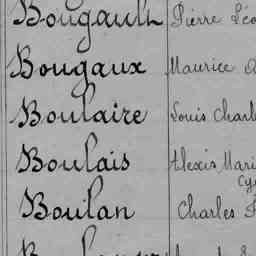 Bougault Pierre Léo
Bougaux Maurice
Boulaire Louis Charl
Boulais Alexis Mari
Cy
Boulan Charles